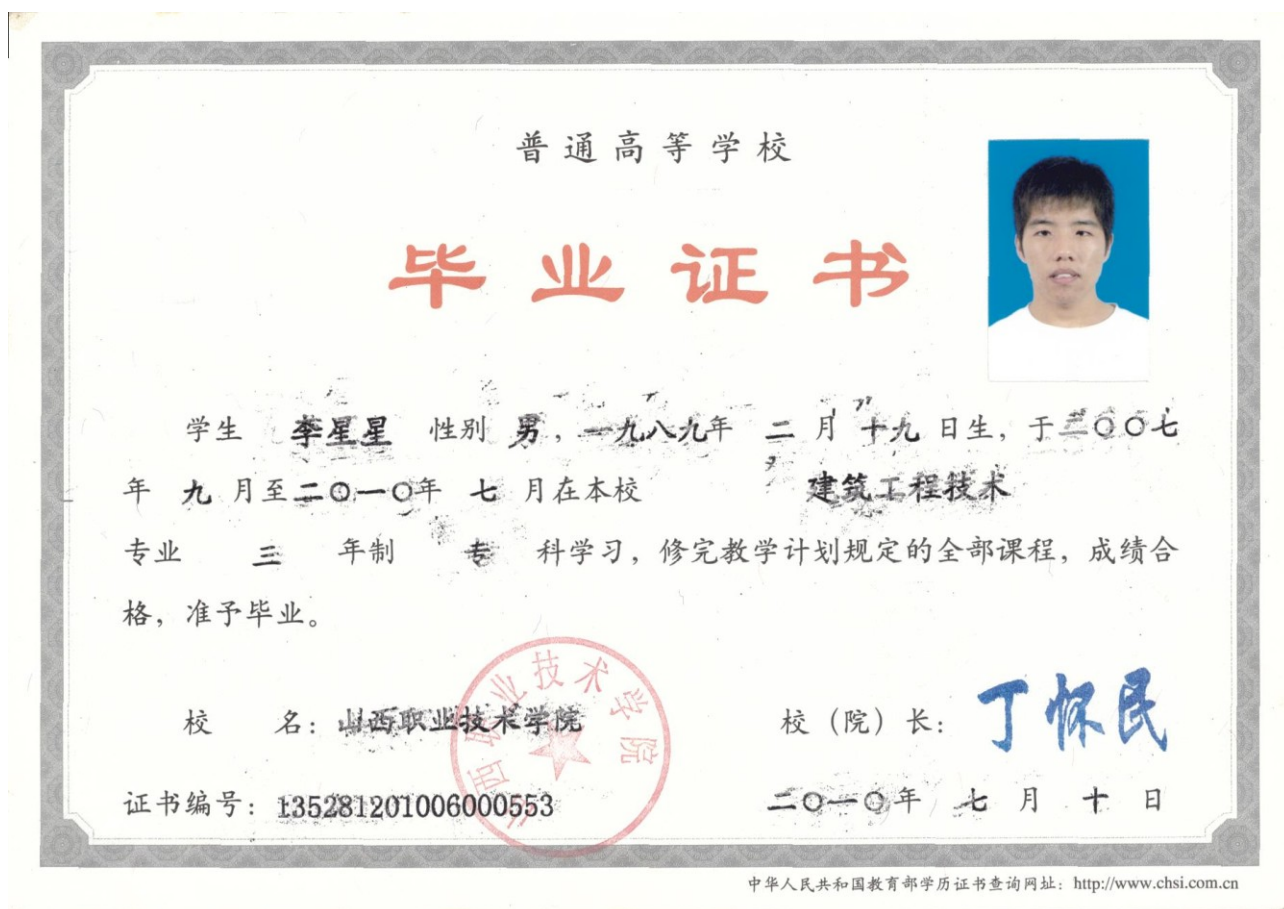 普通高等学校
毕业证书
学生 李星星 性别 男，一九八九年 二 月 十九 日生，于二〇〇七
年 九 月至二〇一〇年 七 月在本校 建筑工程技术
专业 三 年制 专 科学习，修完教学计划规定的全部课程，成绩合
格，准予毕业。
校 名：山西职业技术学院 校（院）长：丁怀民
山西职业技术学院
证书编号：135281201006000553 二〇一〇年 七 月 十 日
中华人民共和国教育部学历证书查询网址：http://www.chsi.com.cn